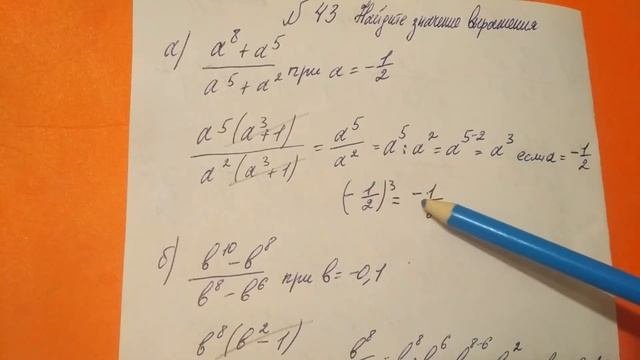 № 43 Найдите значение выражения
а) (a⁸ + a⁵)/(a⁵ + a²) при a = -1/2
a⁵(a³+1)/a²(a³+1) = a⁵/a² = a⁵ : a² = a⁵⁻² = a³ если a = -1/2
(-1/2)³ = -1/
б) (b¹⁰ - b⁸)/(b⁸ - b⁶) при b = -0,1
b⁸(b² - 1) b⁸ b⁸ b⁶ b⁸⁻⁶ b²